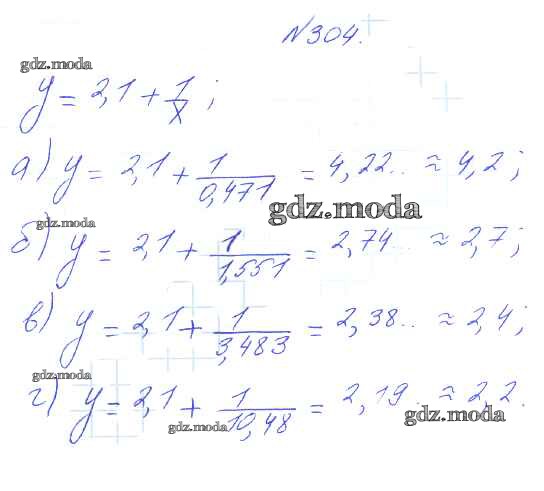 №304.
gdz.moda
y = 2,1 + 1/x ;
а) y = 2,1 + 1/0,471 = 4,22.. ≈ 4,2;
gdz.moda
gdz.moda
б) y = 2,1 + 1/1,551 = 2,74.. ≈ 2,7;
в) y = 2,1 + 1/3,483 = 2,38.. ≈ 2,4;
gdz.moda
г) y = 2,1 + 1/10,48 = 2,19.. ≈ 2,2.
gdz.moda
gdz.moda